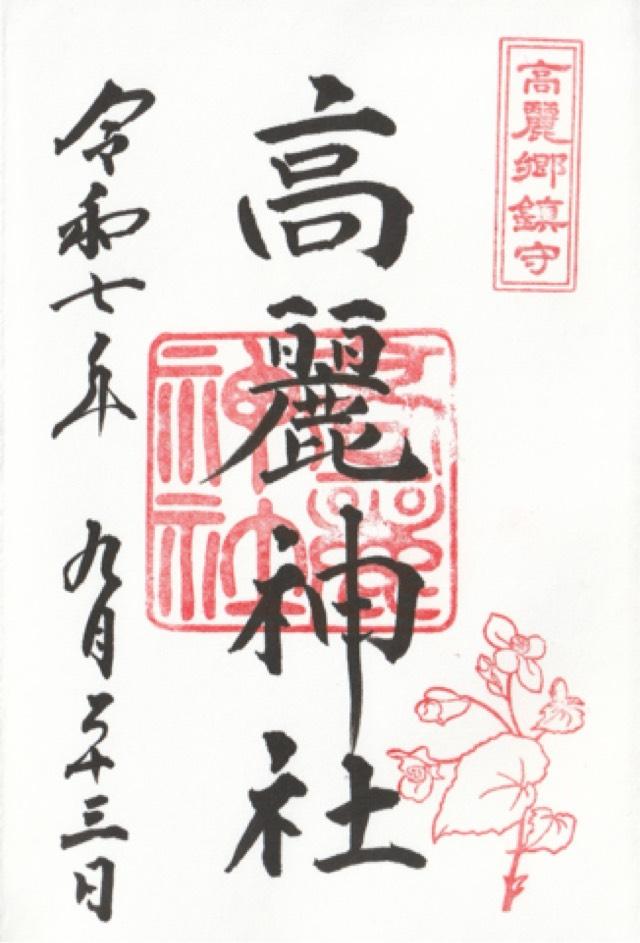 高麗郷鎮守
高麗神社
令和七年 九月二十三日
高麗神社